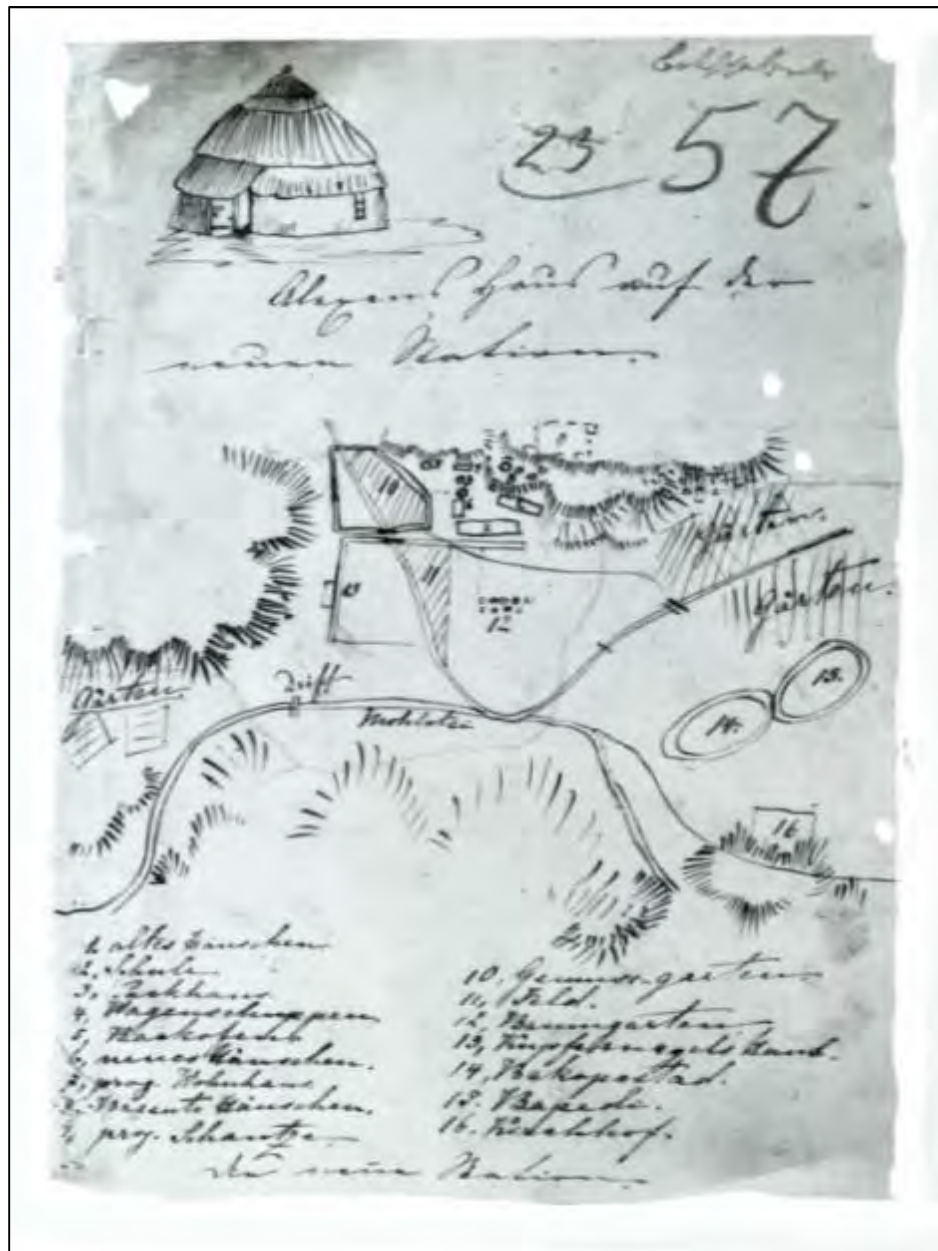 23 57
Alexens Haus auf der
neuen Station.
10
11
12
Gärten.
Gärten.
Gärten.
Drift
14.
15.
16
1. altes Häuschen
2, Schule
3, Packhaus
4, Wagenschuppen
5, Backofen
6, neues Häuschen.
7, proj. Wohnhaus
8, Häuschen.
9, proj. Schantze
10. Gemüse-garten
11, Feld.
12, Baumgarten
13,
14,
15. Bapedi.
16. Kirchhof.
Die neue Station.